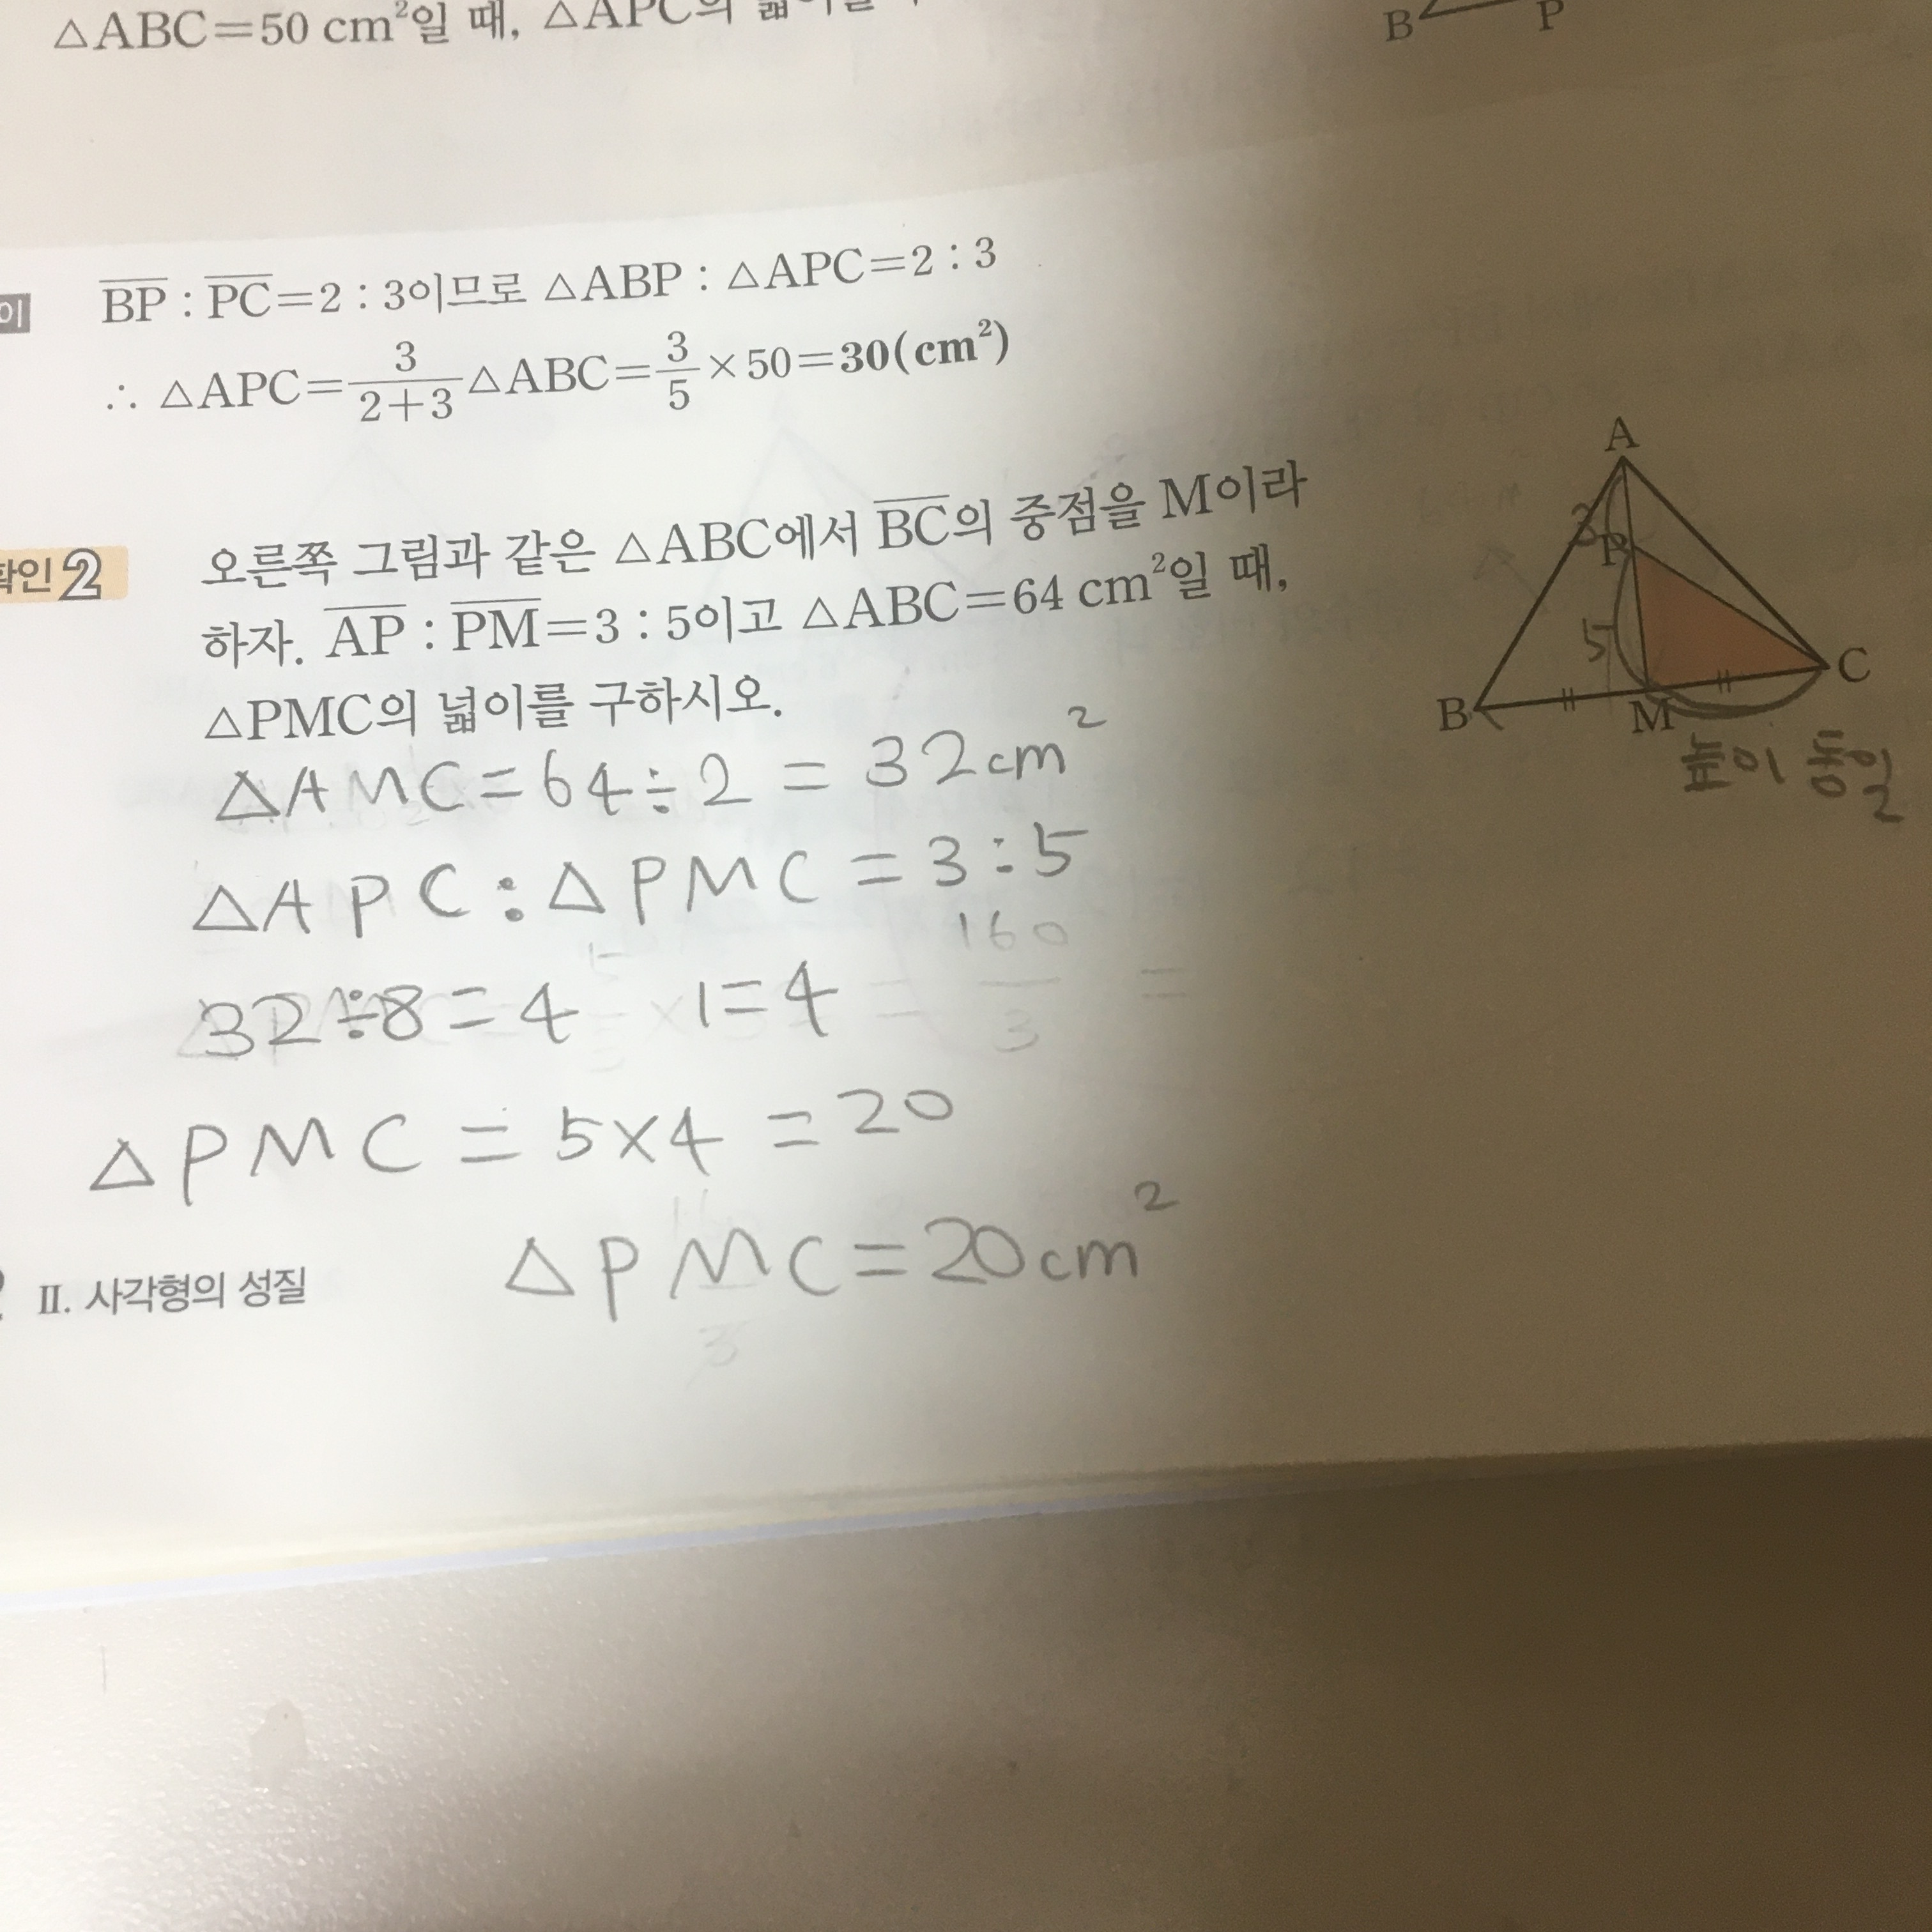 △ABC=50 cm²일 때, △APC의 넓이를
B P
이
BP : PC=2 : 3이므로 △ABP : △APC=2 : 3
∴ △APC=3/(2+3)△ABC=3/5×50=30(cm²)
확인 2
오른쪽 그림과 같은 △ABC에서 BC의 중점을 M이라
하자. AP : PM=3 : 5이고 △ABC=64 cm²일 때,
△PMC의 넓이를 구하시오.
A
3
P
5
B M C
높이 동일
△AMC=64÷2=32cm²
△APC:△PMC=3:5
160
32÷8=4 1=4 = =
3
△PMC=5×4=20
△PMC=20cm²
II. 사각형의 성질
3